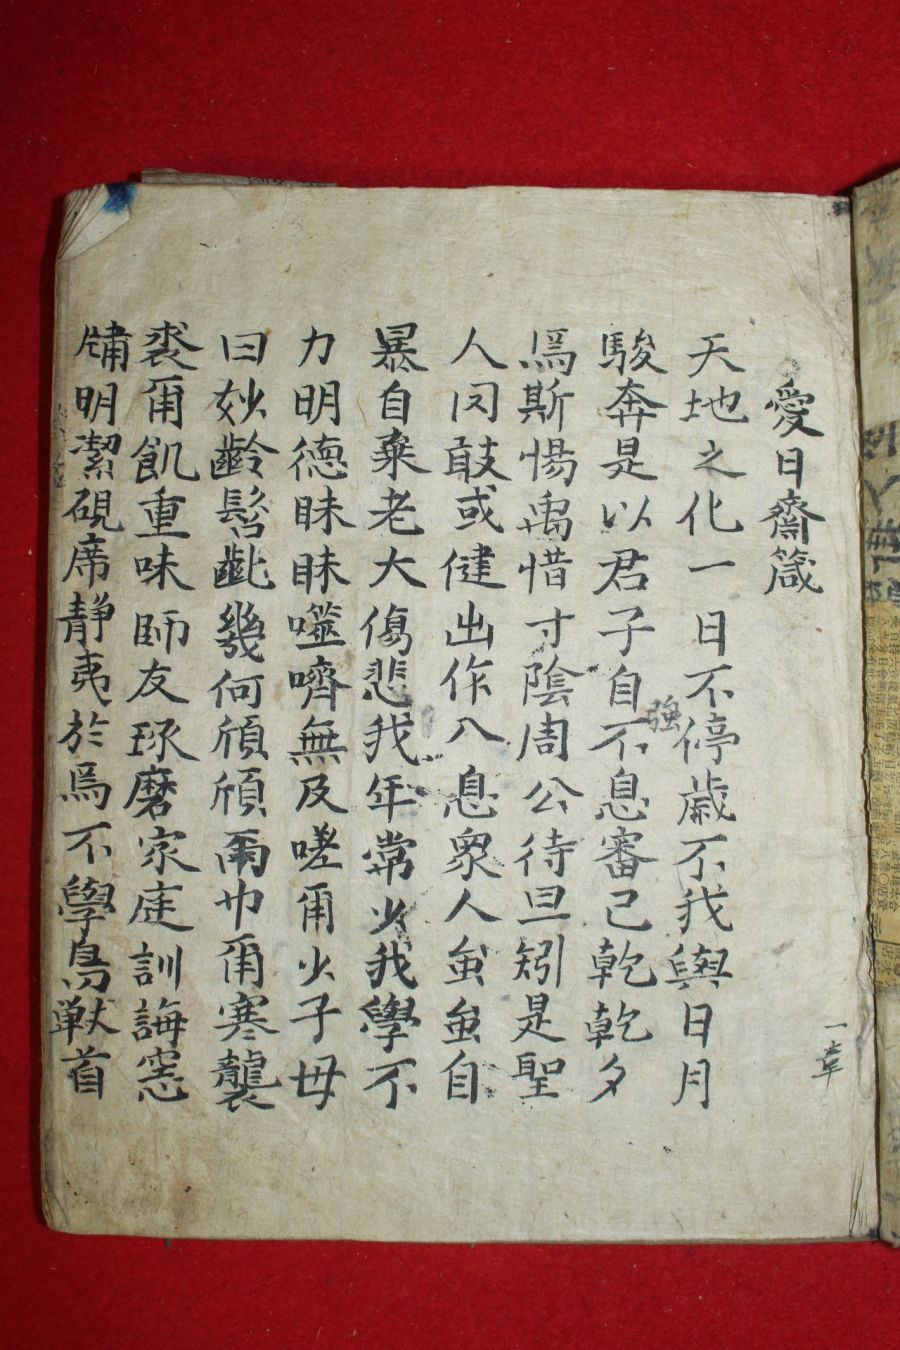 愛日齋箴
一章
天地之化一日不停歲不我與日月
駿奔是以君子自不息審己乾乾夕
強
焉斯惕禹惜寸陰周公待旦矧是聖
人罔敢或健出作入息衆人蚩蚩自
暴自棄老大傷悲我年常少我學不
力明德昧昧噬嚌無及嗟爾少子毋
曰妙齡髫齔幾何頎頎爾巾爾寒襲
裘爾飢重味師友琢磨家庭訓誨窓
牗明潔硯席靜夷於焉不學鳥獸首